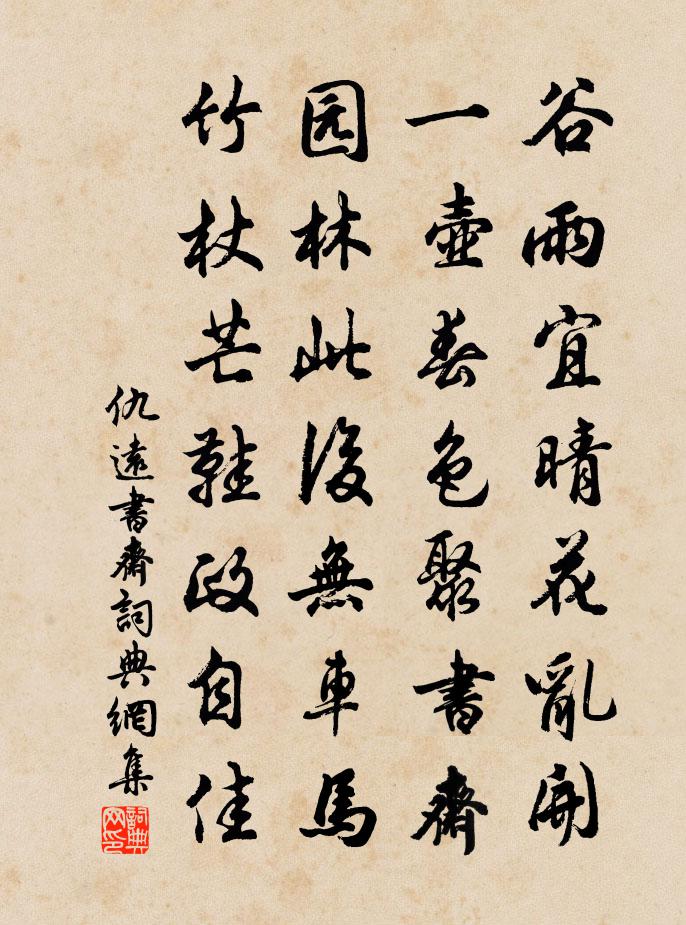 谷雨宜晴花亂開
一壺春色聚書齋
园林此後無車馬
竹杖芒鞋政自佳
仇遠書齋詞典網集
詞典网印